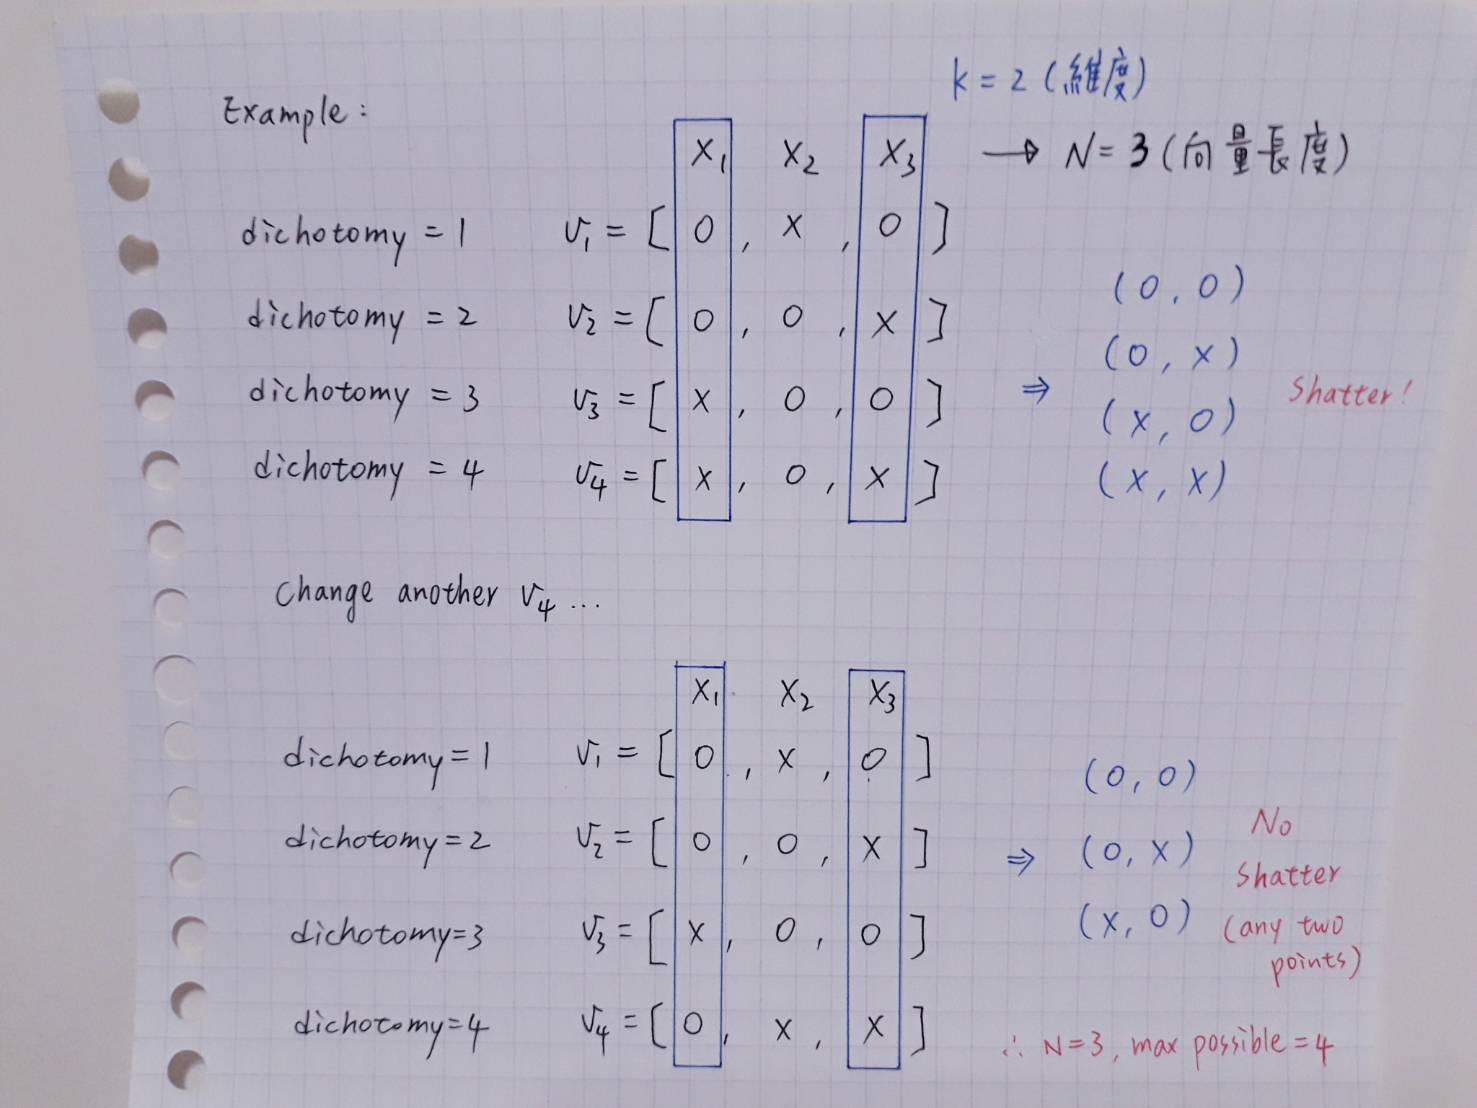 k = 2 (維度)
Example :
x1 x2 x3 → N = 3 (向量長度)
dichotomy = 1 v1 = [ 0 , x , 0 ]
dichotomy = 2 v2 = [ 0 , 0 , x ]
dichotomy = 3 v3 = [ x , 0 , 0 ]
dichotomy = 4 v4 = [ x , 0 , x ]
⇒
(0, 0)
(0, x)
(x, 0)
(x, x)
Shatter!
Change another v4 ...
x1 x2 x3
dichotomy = 1 v1 = [ 0 , x , 0 ]
dichotomy = 2 v2 = [ 0 , 0 , x ]
dichotomy = 3 v3 = [ x , 0 , 0 ]
dichotomy = 4 v4 = [ 0 , x , x ]
⇒
(0, 0)
(0, x)
(x, 0)
No
Shatter
(any two
points)
∴ N = 3, max possible = 4